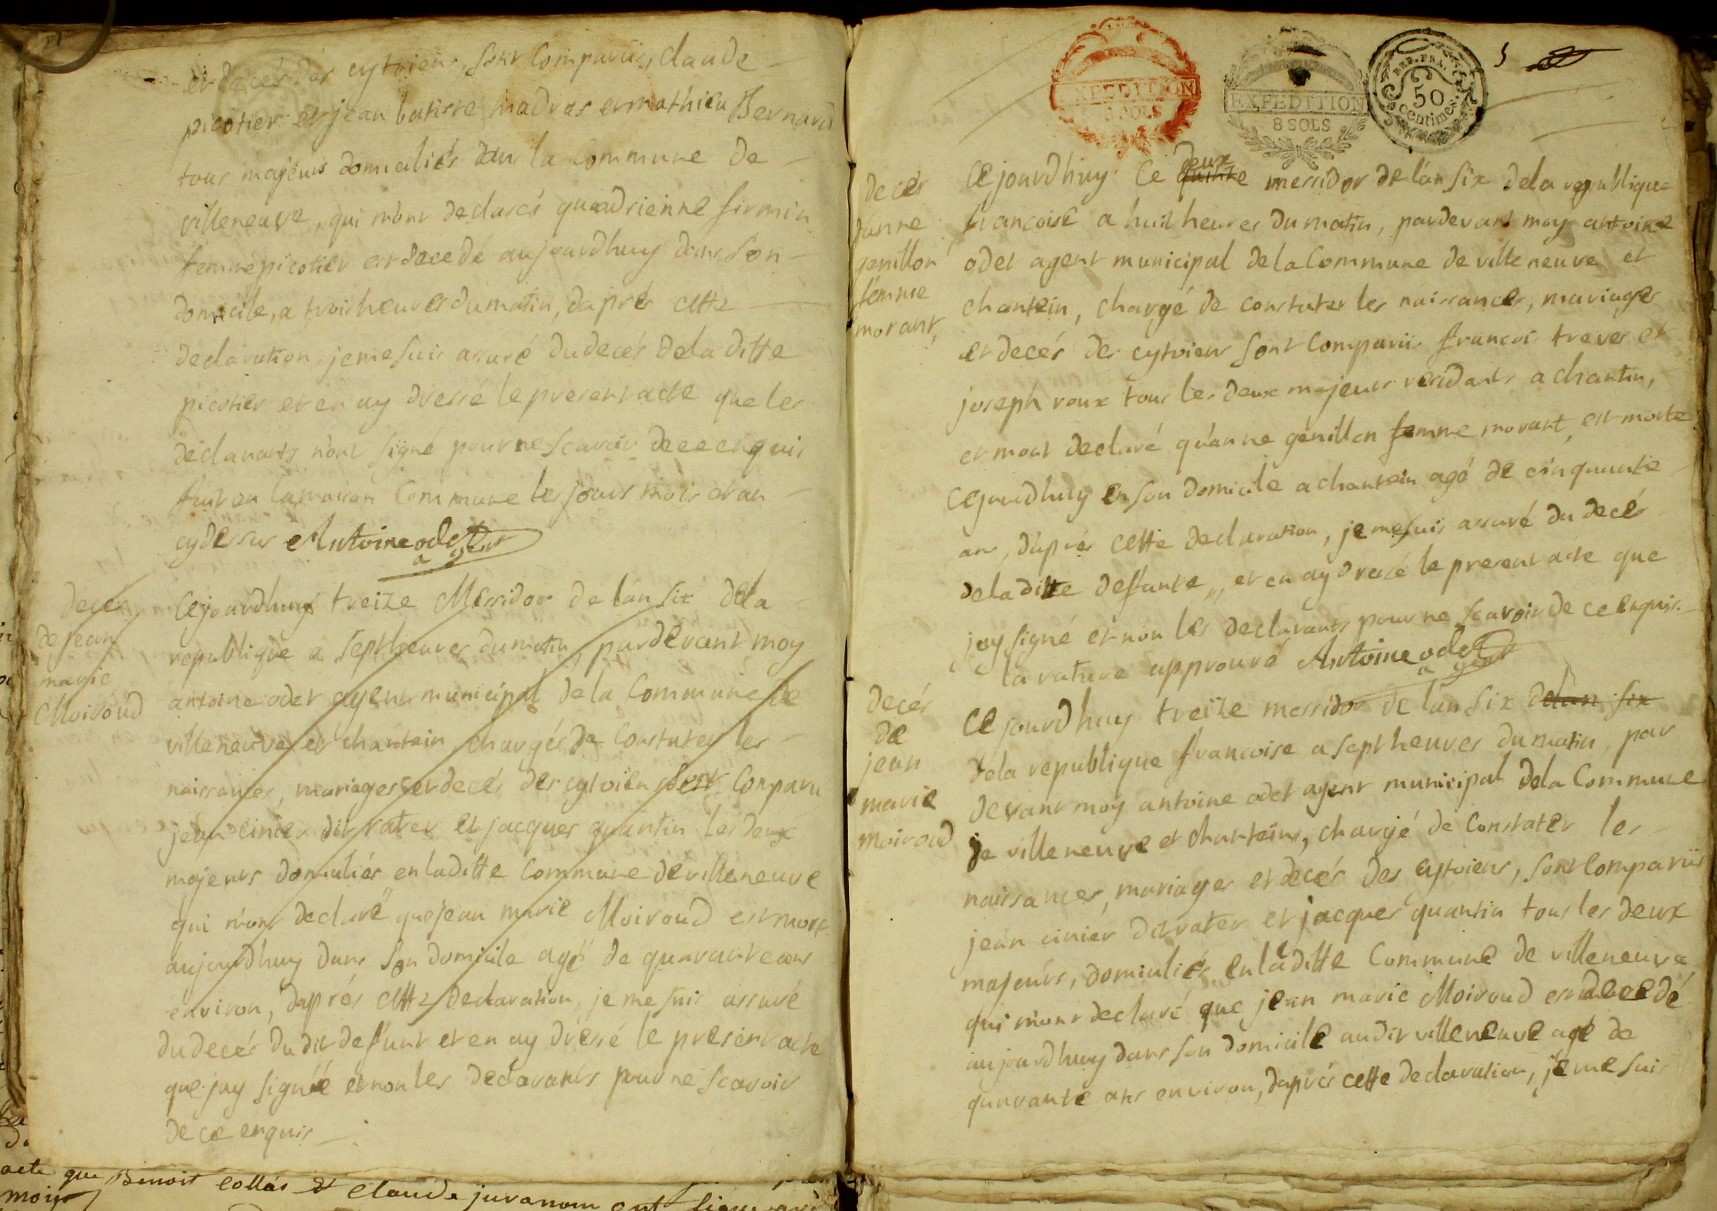 et decés des cytoiens, sont Comparüs, claude
picotier et jean batiste madras et mathieu Bernard
tous majeurs domiciliés dans la commune de
villeneuve, qui m'ont declarés quadrienne firmin
femme picotier et decedé aujourdhuy dans son
domicile, a trois heures du matin, daprés cette
declaration je me suis assuré du decés de la ditte
picotier et en ay dressé le present acte que les
declarants n'ont signé pour ne scavoir de ce enquis
fait en la maison Commune les jours mois et an
cy dessus Antoine odet
agent
deces
de jean
marie
Moiroud
Cejourdhuy treize Messidor de l'an six dela
republique a sept heures du matin, pardevant moy
antoine odet agent municipal de la Commune de
villeneuve et chantein chargés de Constater les
naissances, mariages et decés des cytoiens sont Comparu
jean cinier dit ratev et jacques quantin les deux
majeurs domiciliés en laditte Commune de villeneuve
qui m'ont declaré que jean marie Moiroud est mort
aujourdhuy dans son domicile agé de quarante ans
environ, daprés cette declaration, je me suis assuré
du decés du dit defunt et en ay dressé le present acte
que jay signée et non les declarants pour ne scavoir
de ce enquis
acte que Benoit collas et Claude juvanon ont signé
EXPEDITION
8 SOLS
EXPEDITION
8 SOLS
REP. FRA.
50
Centimes
5
deces
danne
genillon
femme
morant
Cejourdhuy Ce quinze deux messidor de l'an six dela republique
francoise a huit heures du matin, pardevant moy antoine
odet agent municipal dela Commune de villeneuve et
chantein, chargé de constater les naissances, mariages
et decés des cytoiens sont Comparüs francois trever et
joseph roux tous les deux majeurs residants a chantin,
et mont declaré qu'anne génillon femme morant, est morte
Cejourdhuy en son domicile a chantein agé de cinquante
ans, d'aprés cette declaration, je me suis assuré du decés
de la ditte defunte, et en ay dressé le present acte que
jay signé et non les declarants pour ne scavoir de ce enquis
la rature approuvé Antoine odet
agent
decés
de
jean
marie
moiroud
Cejourdhuy treize messidor de l'an six delan six
dela republique francoise a sept heures du matin, par
devant moy antoine odet agent municipal dela Commune
de villeneuve et chanteins, chargé de Constater les
naissances, mariages et decés des cytoiens, sont Comparüs
jean cinier dit ratev et jacques quantin tous les deux
majeurs, domiciliés en laditte Commune de villeneuve
qui m'ont declaré que jean marie Moiroud est decedé
aujourdhuy dans son domicile audit villeneuve agé de
quarante ans environ, daprés cette declaration, je me suis